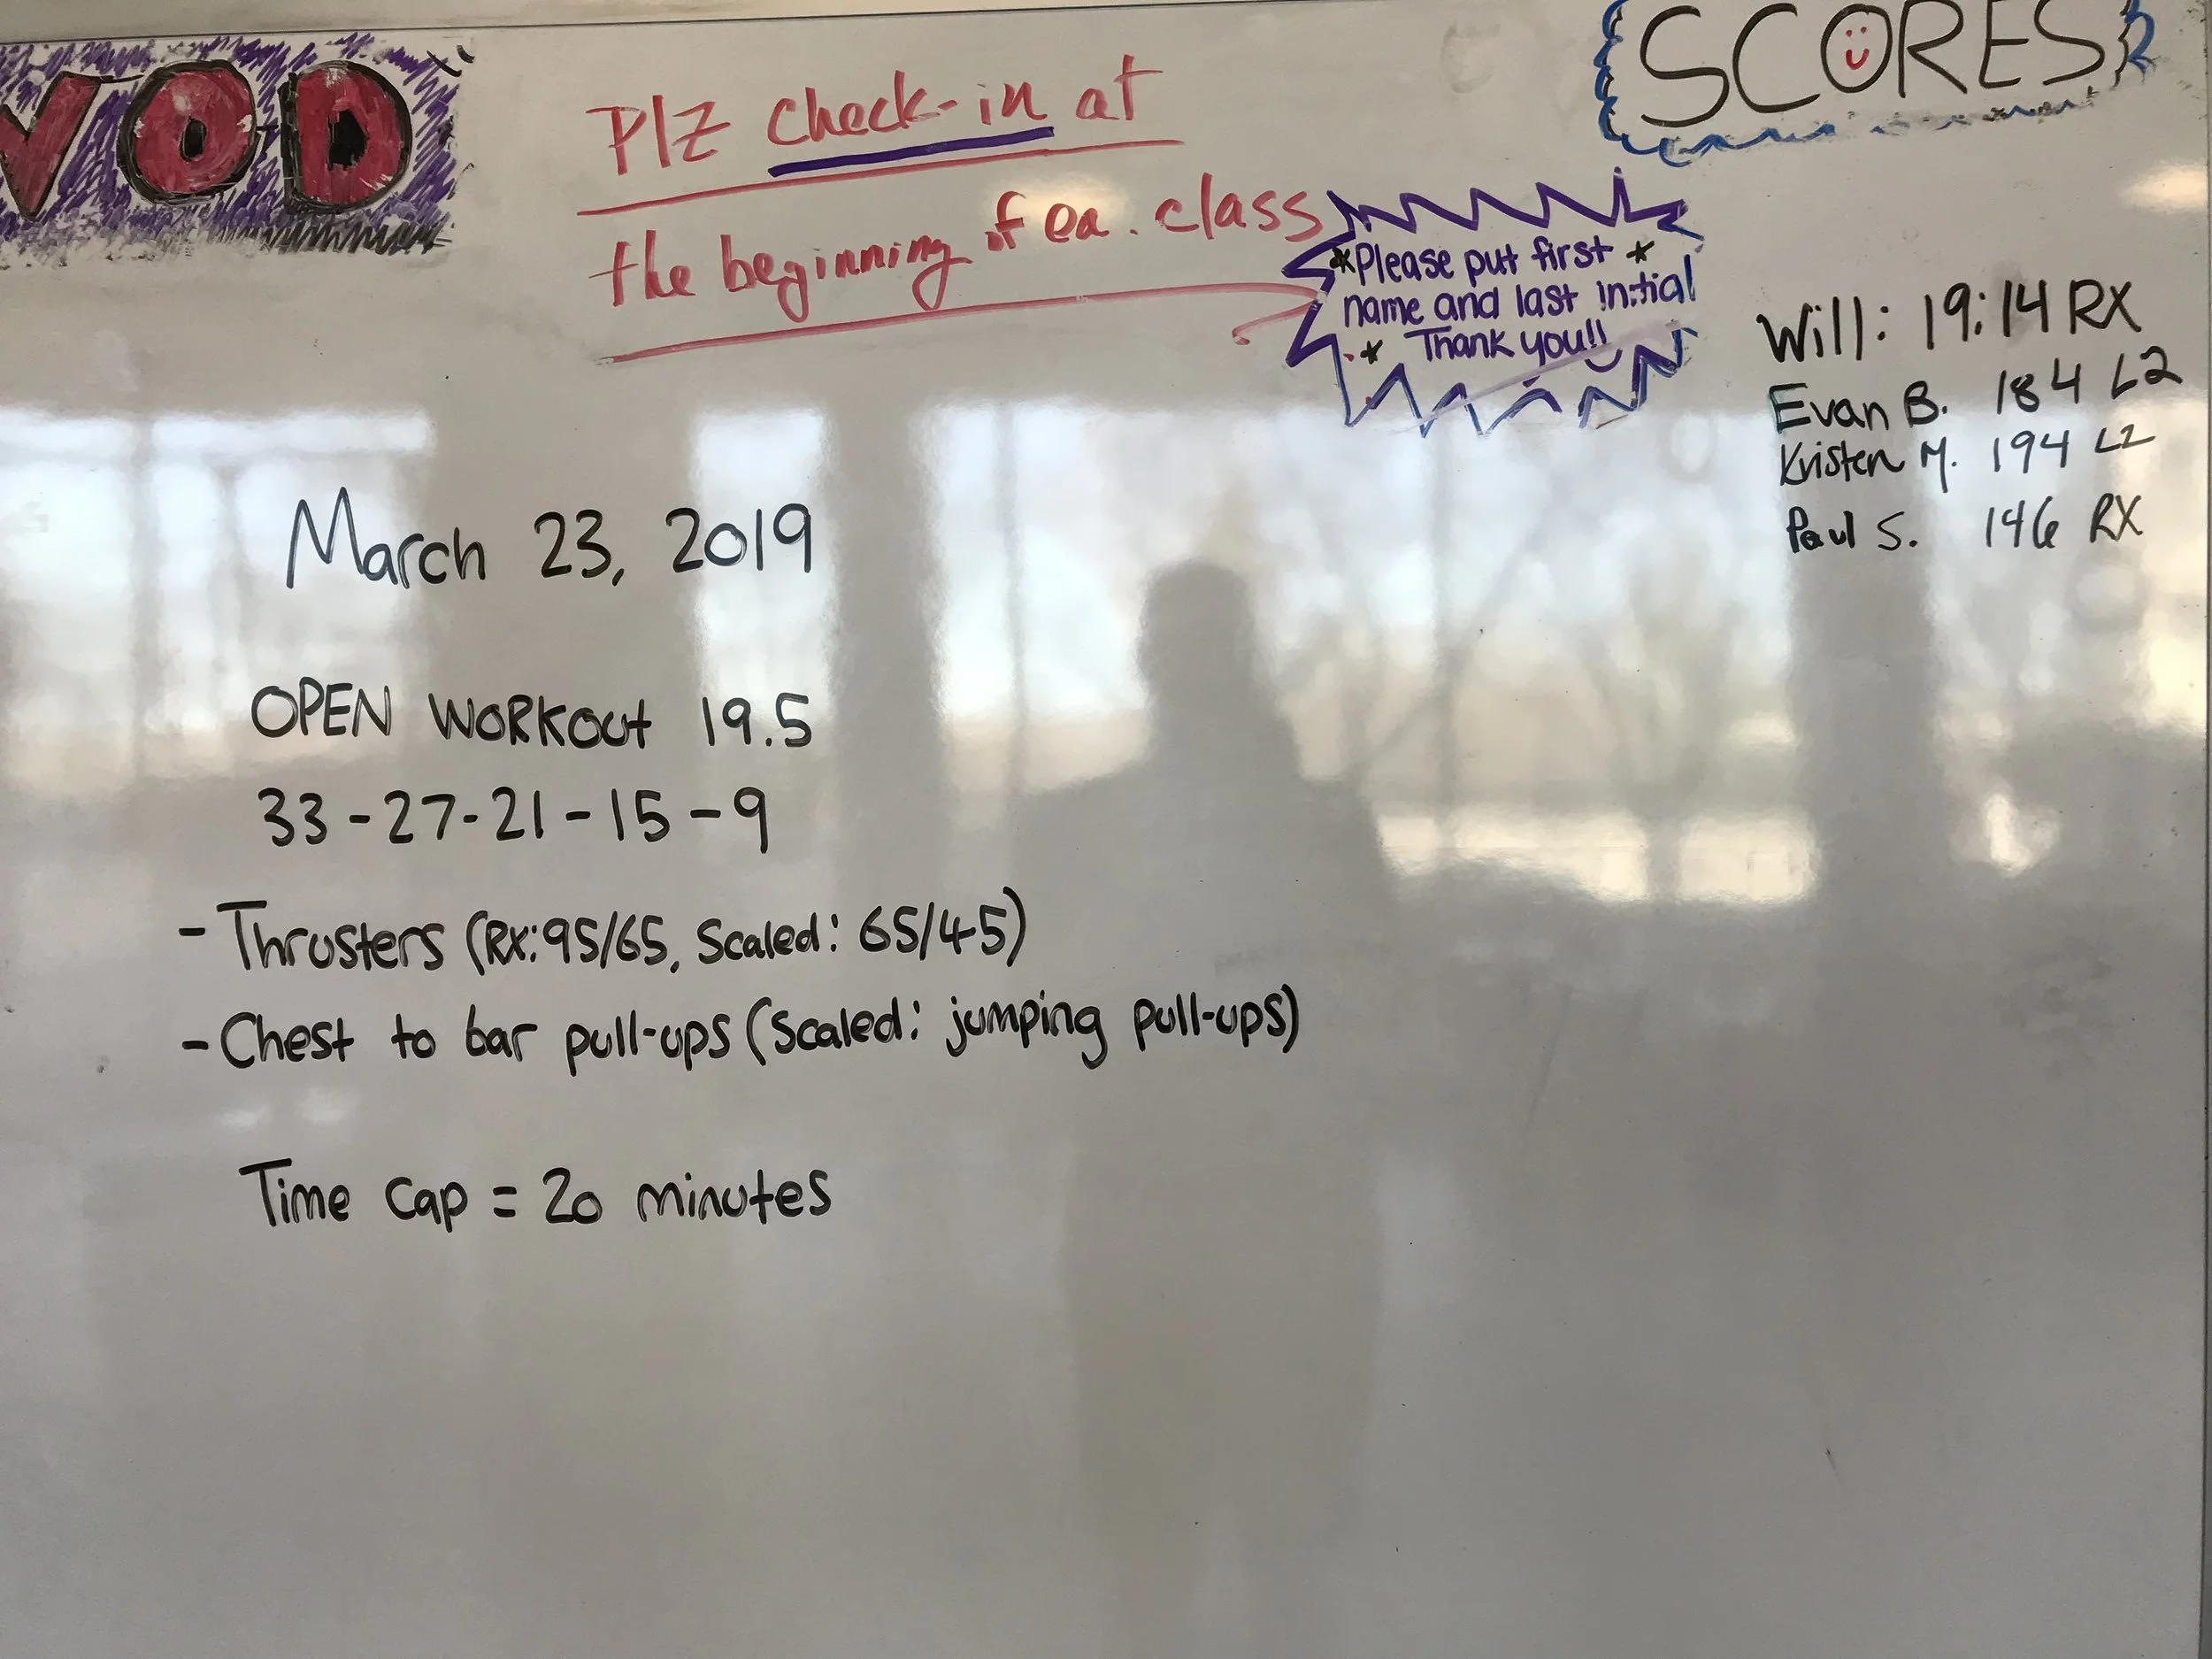 WOD
Plz check-in at
the beginning of ea. class
*Please put first *
name and last initial
* Thank you!!
SCORES
Will: 19:14 RX
Evan B. 184 L2
Kristen M. 194 L2
Paul S. 146 RX
March 23, 2019
OPEN WORKOUT 19.5
33-27-21-15-9
- Thrusters (Rx: 95/65, Scaled: 65/45)
- Chest to bar pull-ups (Scaled: jumping pull-ups)
Time cap = 20 minutes